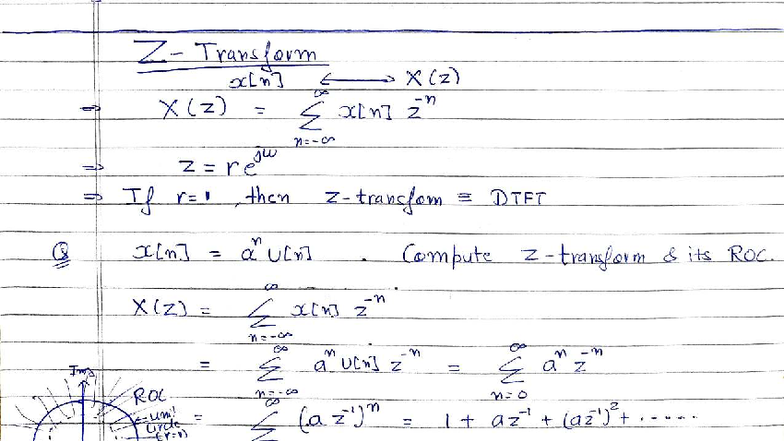 Z-Transform
x[n] ⟷ X(z)
⇒ X(z) = ∞ Σ n=-∞ x[n] z^-n
⇒ z = re^jω
⇒ If r=1, then z-transfom ≡ DTFT
Q x[n] = a^n U[n] . Compute z-transform & its ROC.
X(z) = ∞ Σ n=-∞ x[n] z^-n
= ∞ Σ n=-∞ a^n U[n] z^-n = ∞ Σ n=0 a^n z^-n
Img
ROC
unit
circle
(r=1)
= ∞ Σ (a z^-1)^n = 1 + az^-1 + (az^-1)^2 + ......